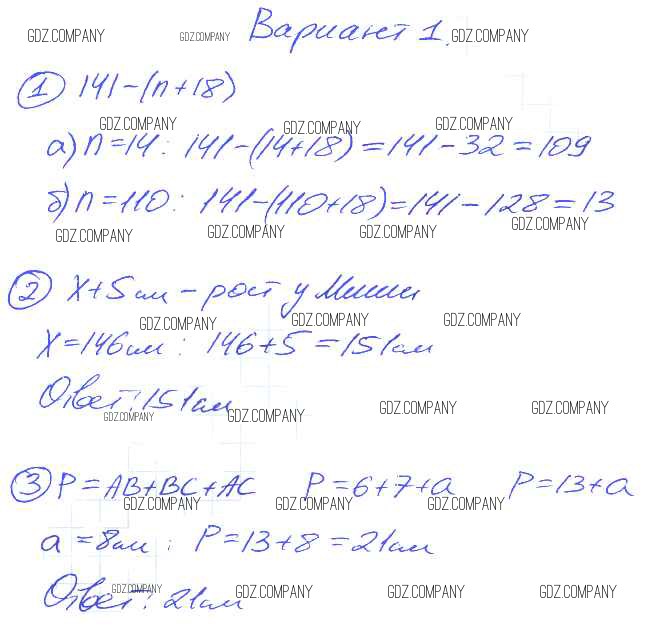 Вариант 1.
GDZ.COMPANY GDZ.COMPANY GDZ.COMPANY
① 141-(n+18)
GDZ.COMPANY GDZ.COMPANY GDZ.COMPANY
а) n=14: 141-(14+18)=141-32=109
б) n=110: 141-(110+18)=141-128=13
GDZ.COMPANY GDZ.COMPANY GDZ.COMPANY GDZ.COMPANY
② x+5см - рост у Миши
GDZ.COMPANY GDZ.COMPANY GDZ.COMPANY
x=146см: 146+5=151см
Ответ: 151см
GDZ.COMPANY GDZ.COMPANY GDZ.COMPANY GDZ.COMPANY
③ P=AB+BC+AC P=6+7+a P=13+a
GDZ.COMPANY GDZ.COMPANY GDZ.COMPANY
a=8см: P=13+8=21см
Ответ: 21см
GDZ.COMPANY GDZ.COMPANY GDZ.COMPANY GDZ.COMPANY